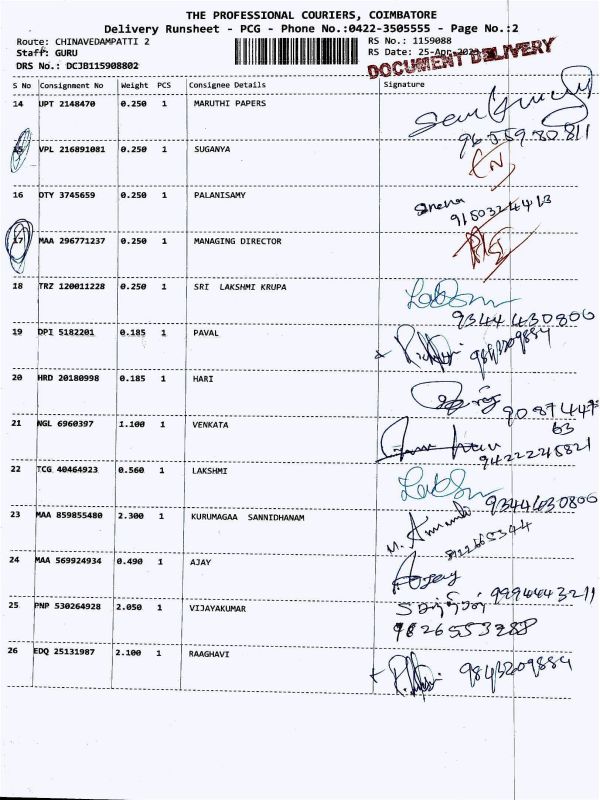 THE PROFESSIONAL COURIERS, COIMBATORE
Delivery Runsheet - PCG - Phone No.:0422-3505555 - Page No.:2
Route: CHINAVEDAMPATTI 2 RS No.: 1159088
Staff: GURU RS Date: 25-Apr
DRS No.: DCJB115908802 DOCUMENT DELIVERY
S No Consignment No Weight PCS Consignee Details Signature
14 UPT 2148470 0.250 1 MARUTHI PAPERS
15 VPL 216891081 0.250 1 SUGANYA
16 DTY 3745659 0.250 1 PALANISAMY
17 MAA 296771237 0.250 1 MANAGING DIRECTOR
18 TRZ 120011228 0.250 1 SRI LAKSHMI KRUPA
9344430806
19 DPI 5182201 0.185 1 PAVAL
9843209884
20 HRD 20180998 0.185 1 HARI
9087447
63
21 NGL 6960397 1.100 1 VENKATA
22 TCG 40464923 0.560 1 LAKSHMI
23 MAA 859855480 2.300 1 KURUMAGAA SANNIDHANAM
24 MAA 569924934 0.490 1 AJAY
Ajay
9994443211
25 PNP 530264928 2.050 1 VIJAYAKUMAR
9826553288
26 EDQ 25131987 2.100 1 RAAGHAVI
9843209884